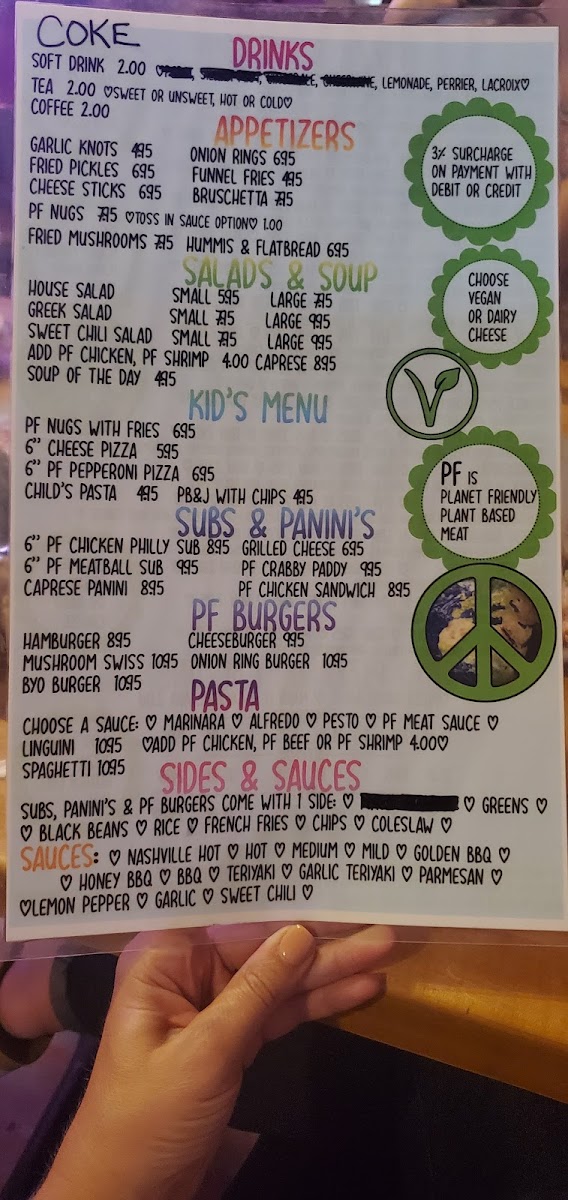 COKE
DRINKS
SOFT DRINK 2.00 LEMONADE, PERRIER, LACROIX♡
TEA 2.00 ♡SWEET OR UNSWEET, HOT OR COLD♡
COFFEE 2.00
APPETIZERS
GARLIC KNOTS 4.95 ONION RINGS 6.95
FRIED PICKLES 6.95 FUNNEL FRIES 4.95
CHEESE STICKS 6.95 BRUSCHETTA 7.95
PF NUGS 7.95 ♡TOSS IN SAUCE OPTION♡ 1.00
FRIED MUSHROOMS 7.95 HUMMIS & FLATBREAD 6.95
3% SURCHARGE
ON PAYMENT WITH
DEBIT OR CREDIT
SALADS & SOUP
HOUSE SALAD SMALL 5.95 LARGE 7.95
GREEK SALAD SMALL 7.95 LARGE 9.95
SWEET CHILI SALAD SMALL 7.95 LARGE 9.95
ADD PF CHICKEN, PF SHRIMP 4.00 CAPRESE 8.95
SOUP OF THE DAY 4.95
CHOOSE
VEGAN
OR DAIRY
CHEESE
V
KID'S MENU
PF NUGS WITH FRIES 6.95
6" CHEESE PIZZA 5.95
6" PF PEPPERONI PIZZA 6.95
CHILD'S PASTA 4.95 PB&J WITH CHIPS 4.95
PF IS
PLANET FRIENDLY
PLANT BASED
MEAT
SUBS & PANINI'S
6" PF CHICKEN PHILLY SUB 8.95 GRILLED CHEESE 6.95
6" PF MEATBALL SUB 9.95 PF CRABBY PADDY 9.95
CAPRESE PANINI 8.95 PF CHICKEN SANDWICH 8.95
PF BURGERS
HAMBURGER 8.95 CHEESEBURGER 9.95
MUSHROOM SWISS 10.95 ONION RING BURGER 10.95
BYO BURGER 10.95
PASTA
CHOOSE A SAUCE: ♡ MARINARA ♡ ALFREDO ♡ PESTO ♡ PF MEAT SAUCE ♡
LINGUINI 10.95 ♡ADD PF CHICKEN, PF BEEF OR PF SHRIMP 4.00♡
SPAGHETTI 10.95
SIDES & SAUCES
SUBS, PANINI'S & PF BURGERS COME WITH 1 SIDE: ♡ ♡ GREENS ♡
♡ BLACK BEANS ♡ RICE ♡ FRENCH FRIES ♡ CHIPS ♡ COLESLAW ♡
SAUCES: ♡ NASHVILLE HOT ♡ HOT ♡ MEDIUM ♡ MILD ♡ GOLDEN BBQ ♡
♡ HONEY BBQ ♡ BBQ ♡ TERIYAKI ♡ GARLIC TERIYAKI ♡ PARMESAN ♡
♡LEMON PEPPER ♡ GARLIC ♡ SWEET CHILI ♡